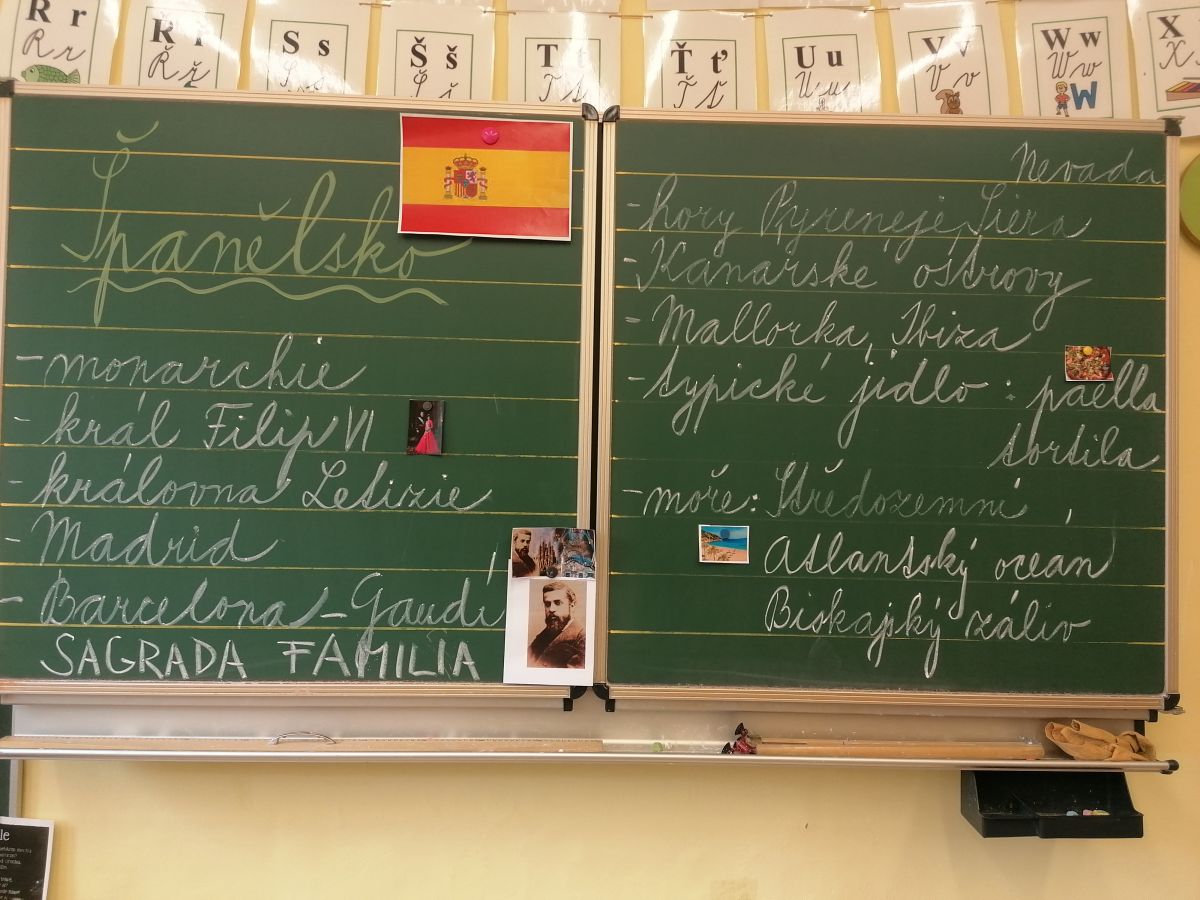 R r
R r
Ř ř
Ř ř
S s
S s
Š š
Š š
T t
T t
Ť ť
Ť ť
U u
U u
V v
V v
W w
W w
W
X
X
Španělsko
- monarchie
- král Filip VI
- královna Letizie
- Madrid
- Barcelona - Gaudí
SAGRADA FAMILIA
Nevada
- hory Pyreneje, Siera
- Kanárské ostrovy
- Mallorka, Ibiza
- typické jídlo : paella
tortila
- moře: Středozemní,
Atlantský oceán
Biskajský záliv
le